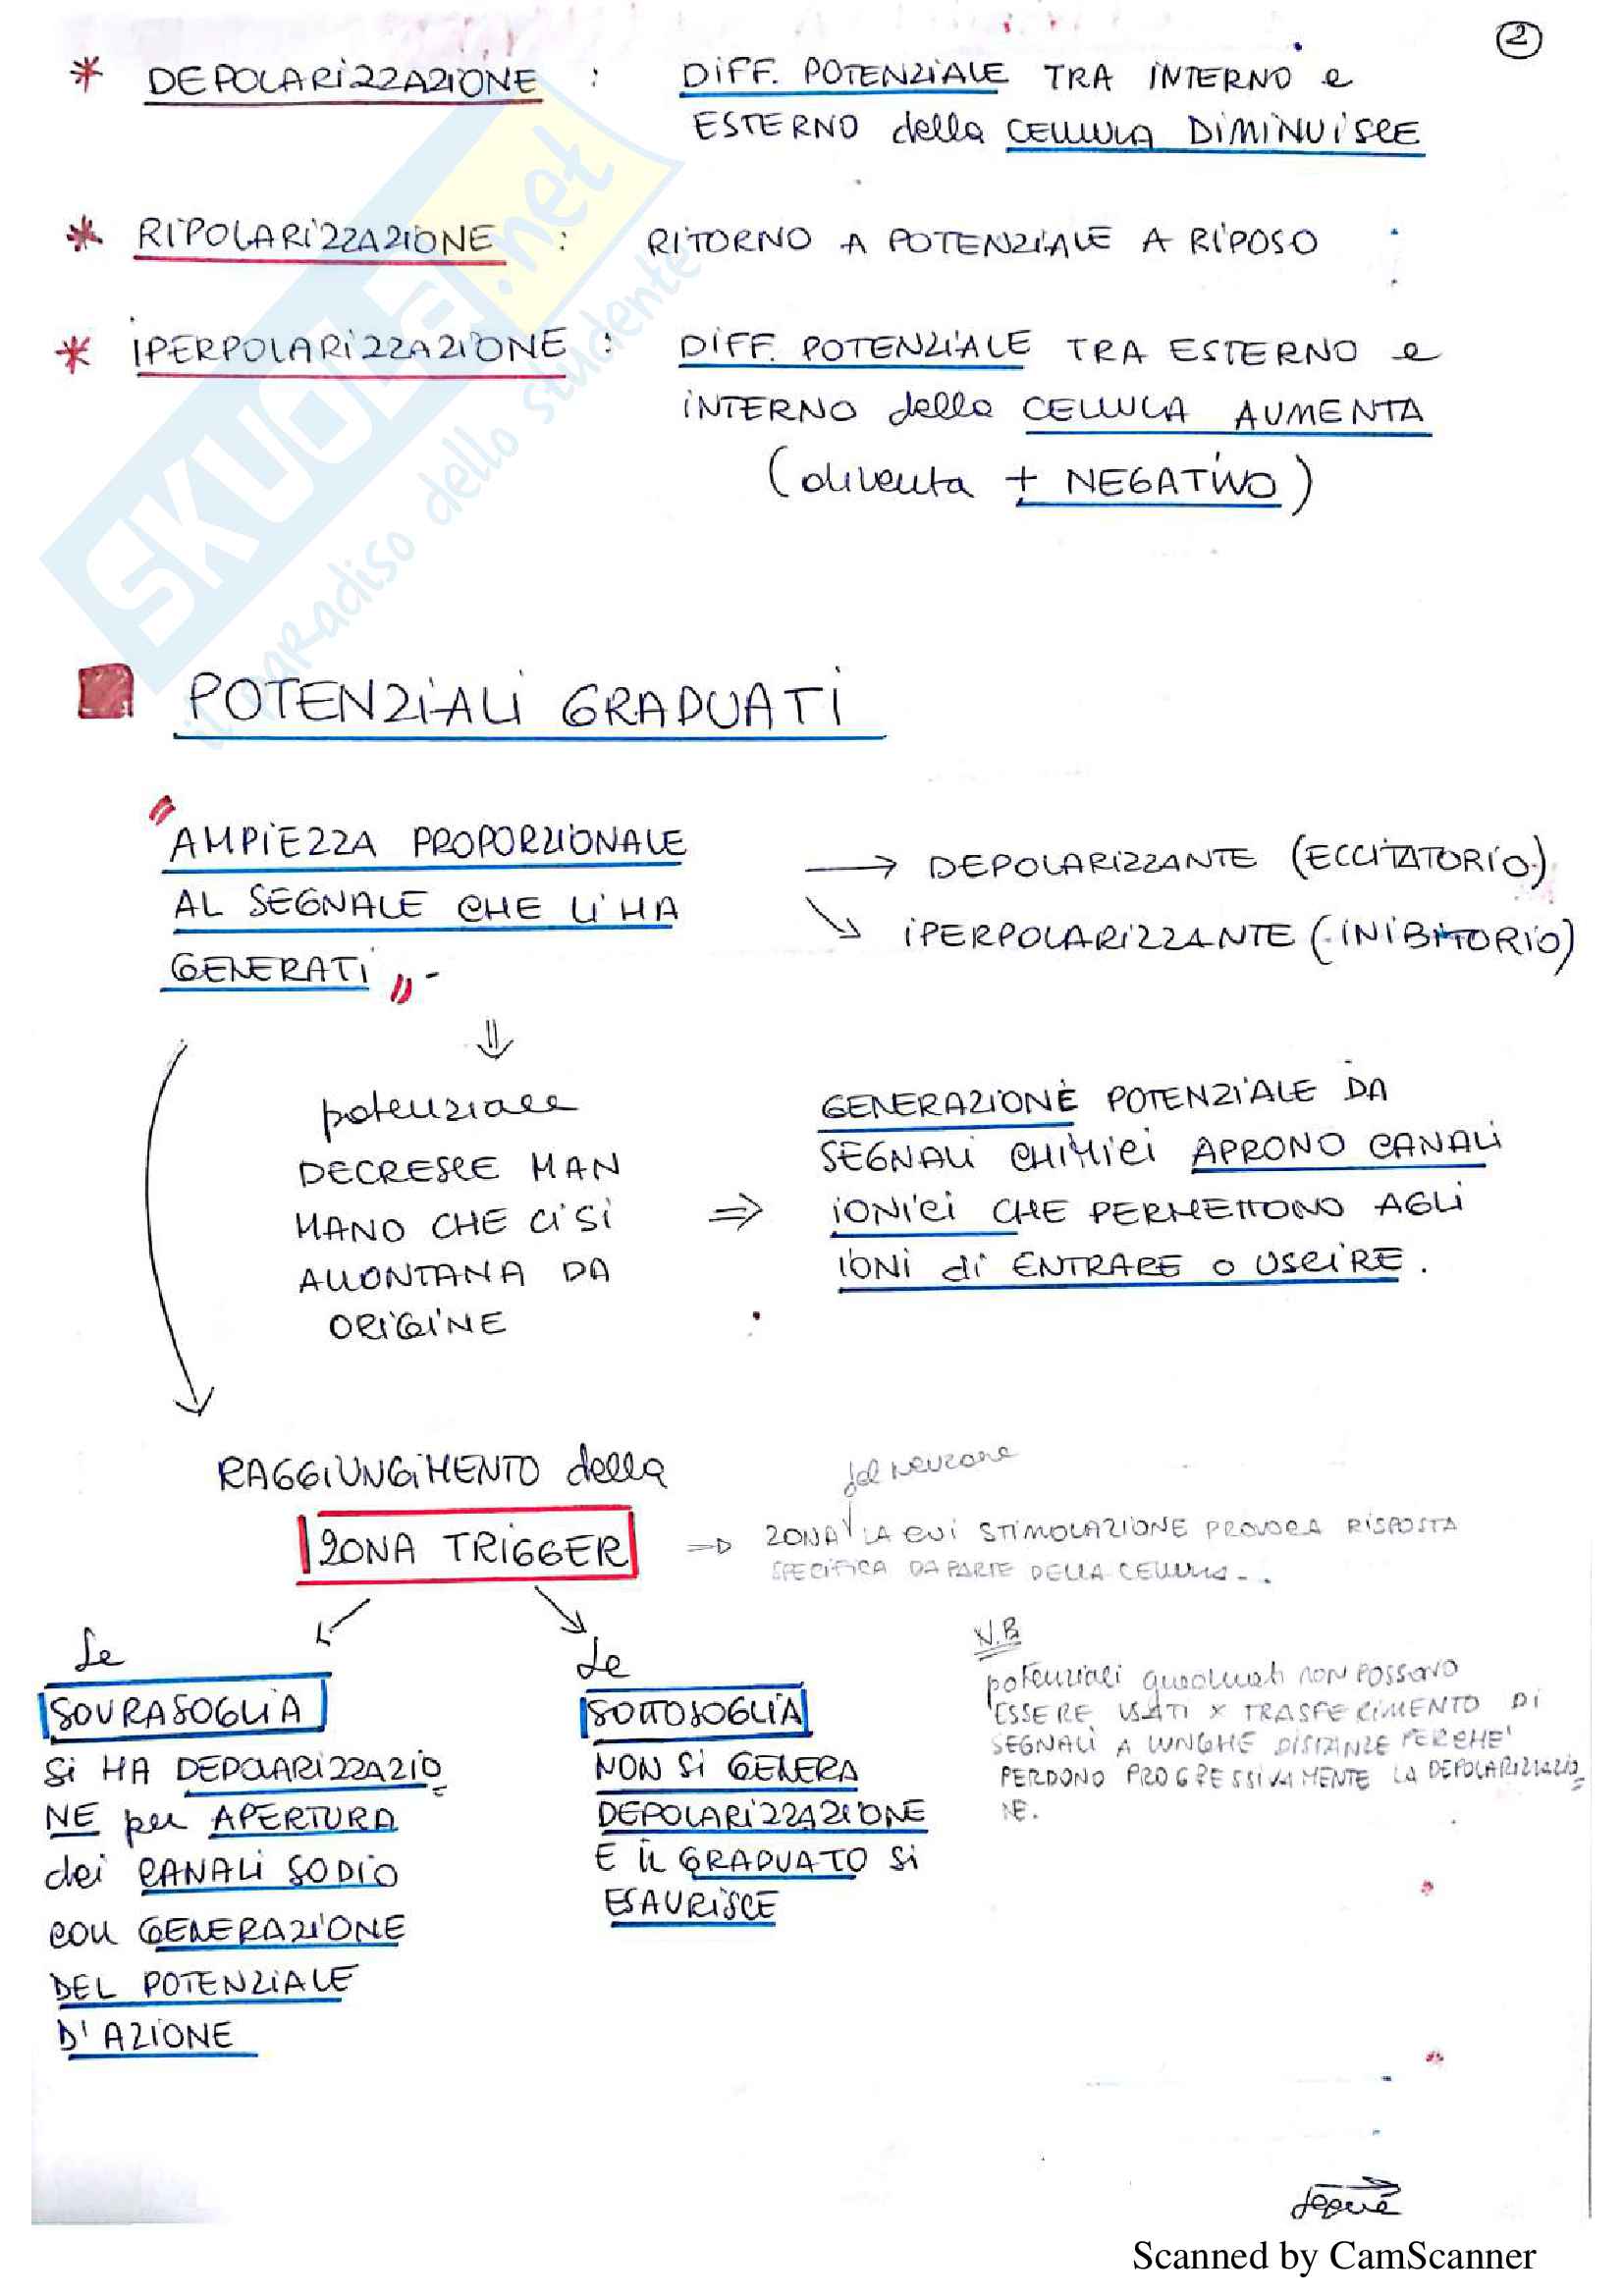 2
* DEPOLARIZZAZIONE : DIFF. POTENZIALE TRA INTERNO e
ESTERNO della CELLULA DIMINUISCE
* RIPOLARIZZAZIONE : RITORNO A POTENZIALE A RIPOSO
* IPERPOLARIZZAZIONE : DIFF. POTENZIALE TRA ESTERNO e
INTERNO della CELLULA AUMENTA
(diventa + NEGATIVO)
SKUOLA.net
il paradiso dello studente
POTENZIALI GRADUATI
"AMPIEZZA PROPORZIONALE
AL SEGNALE CHE LI HA
GENERATI" -
→ DEPOLARIZZANTE (ECCITATORIO)
↘ IPERPOLARIZZANTE (INIBITORIO)
⇓
potenziale
DECRESCE MAN
MANO CHE CI SI
ALLONTANA DA
ORIGINE
⇒ GENERAZIONE POTENZIALE DA
SEGNALI CHIMICI APRONO CANALI
IONICI CHE PERMETTONO AGLI
IONI di ENTRARE O USCIRE.
RAGGIUNGIMENTO della
ZONA TRIGGER
del neurone
⇒ ZONA LA CUI STIMOLAZIONE PROVOCA RISPOSTA
SPECIFICA DA PARTE DELLA CELLULA..
Se
SOVRASOGLIA
Si HA DEPOLARIZZAZIO
NE per APERTURA
dei CANALI SODIO
con GENERAZIONE
DEL POTENZIALE
D'AZIONE
Se
SOTTOSOGLIA
NON SI GENERA
DEPOLARIZZAZIONE
E IL GRADUATO SI
ESAURISCE
N.B
potenziali graduati NON POSSONO
ESSERE USATI x TRASFERIMENTO DI
SEGNALI A LUNGHE DISTANZE PERCHE'
PERDONO PROGRESSIVAMENTE LA DEPOLARIZZAZIO
NE.
segue
Scanned by CamScanner